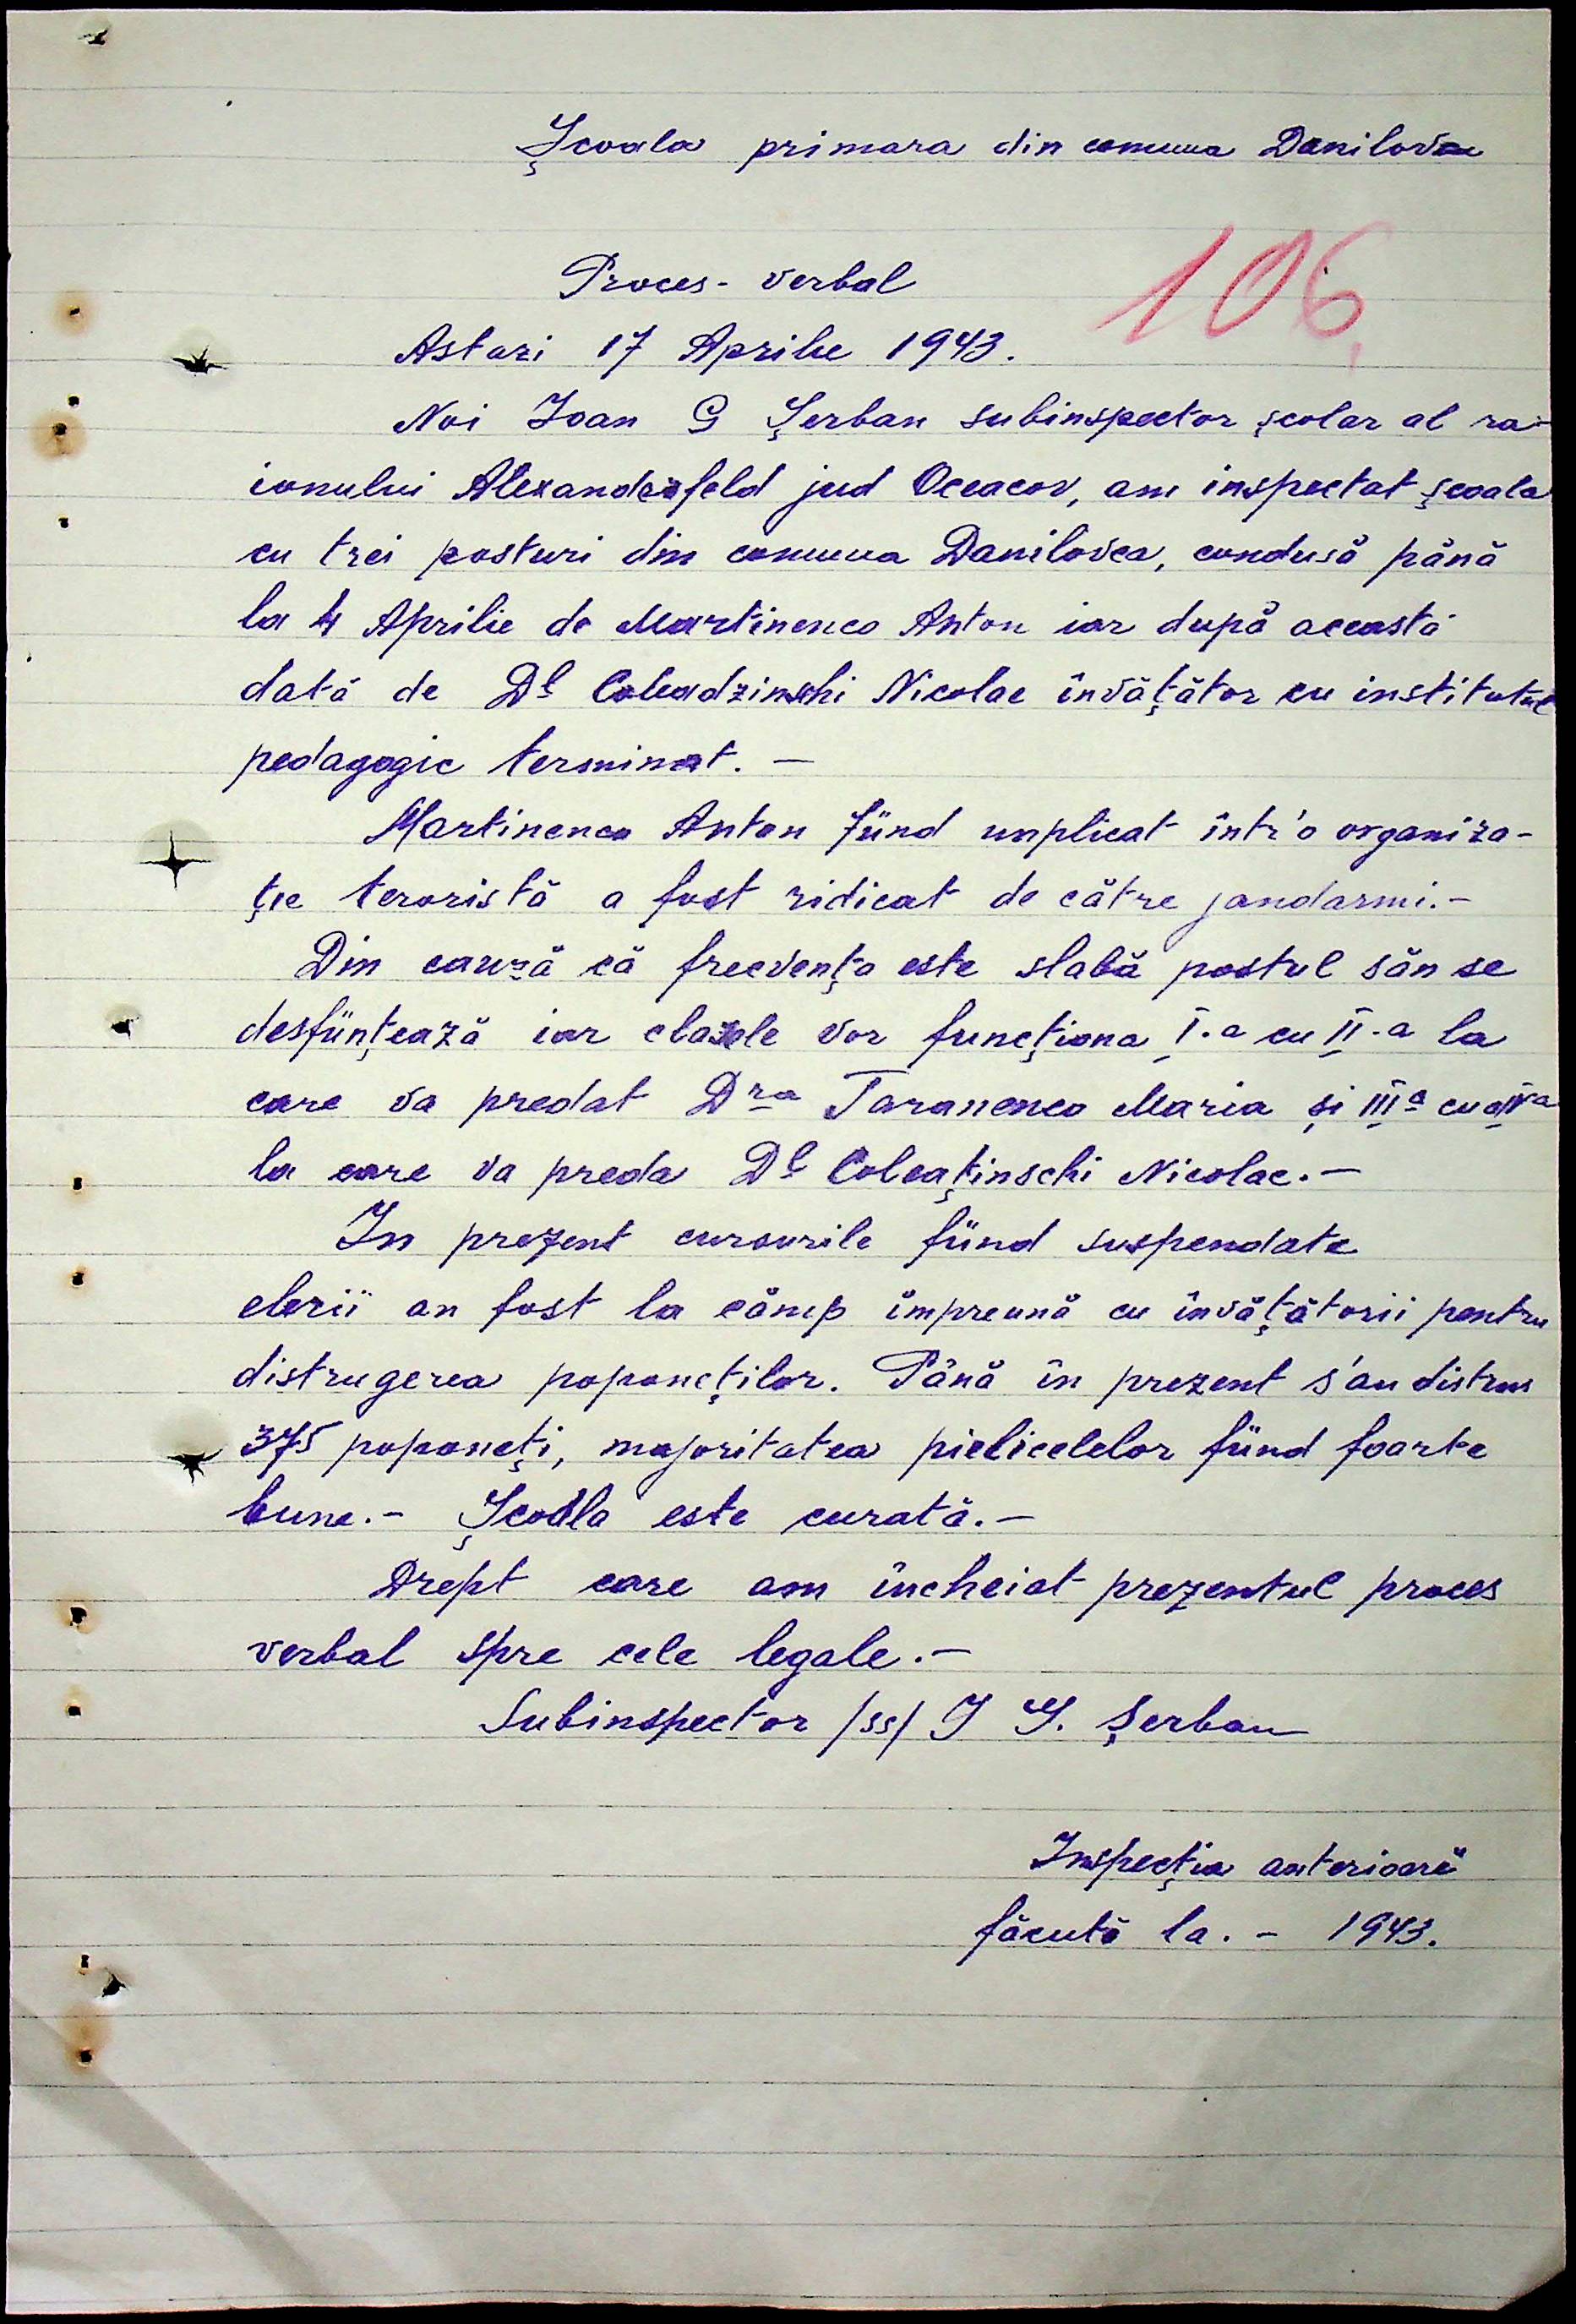 Școala primara din comuna Danilovca
106
Proces-verbal
Astazi 17 Aprilie 1943.
Noi Ioan G Șerban subinspector școlar al ra-
ionului Alexanderfeld jud Oceacov, am inspectat școala
cu trei posturi din comuna Danilovca, condusă până
la 4 Aprilie de Martinenco Anton iar după această
dată de Dl Coleadzinschi Nicolae învățător cu institutul
pedagogic terminat. —
Martinenco Anton fiind implicat într'o organiza-
ție teroristă a fost ridicat de către jandarmi.-
Din cauză că frecvența este slabă postul săn se
desființează iar clasele vor funcționa I.a cu II.a la
care va predat Dra Taranenco Maria și IIIa cu a IVa
la care va preda Dl Coleaținschi Nicolae.-
In prezent cursurile fiind suspendate
elevii au fost la câmp împreună cu învățătorii pentru
distrugerea poponeților. Până în prezent s'au distrus
375 poponeți, majoritatea pielicelelor fiind foarte
bune.- Școala este curată.-
Drept care am încheiat prezentul proces
verbal spre cele legale.-
Subinspector /ss/ I G. Șerban
Inspecția anterioară
făcută la. - 1943.